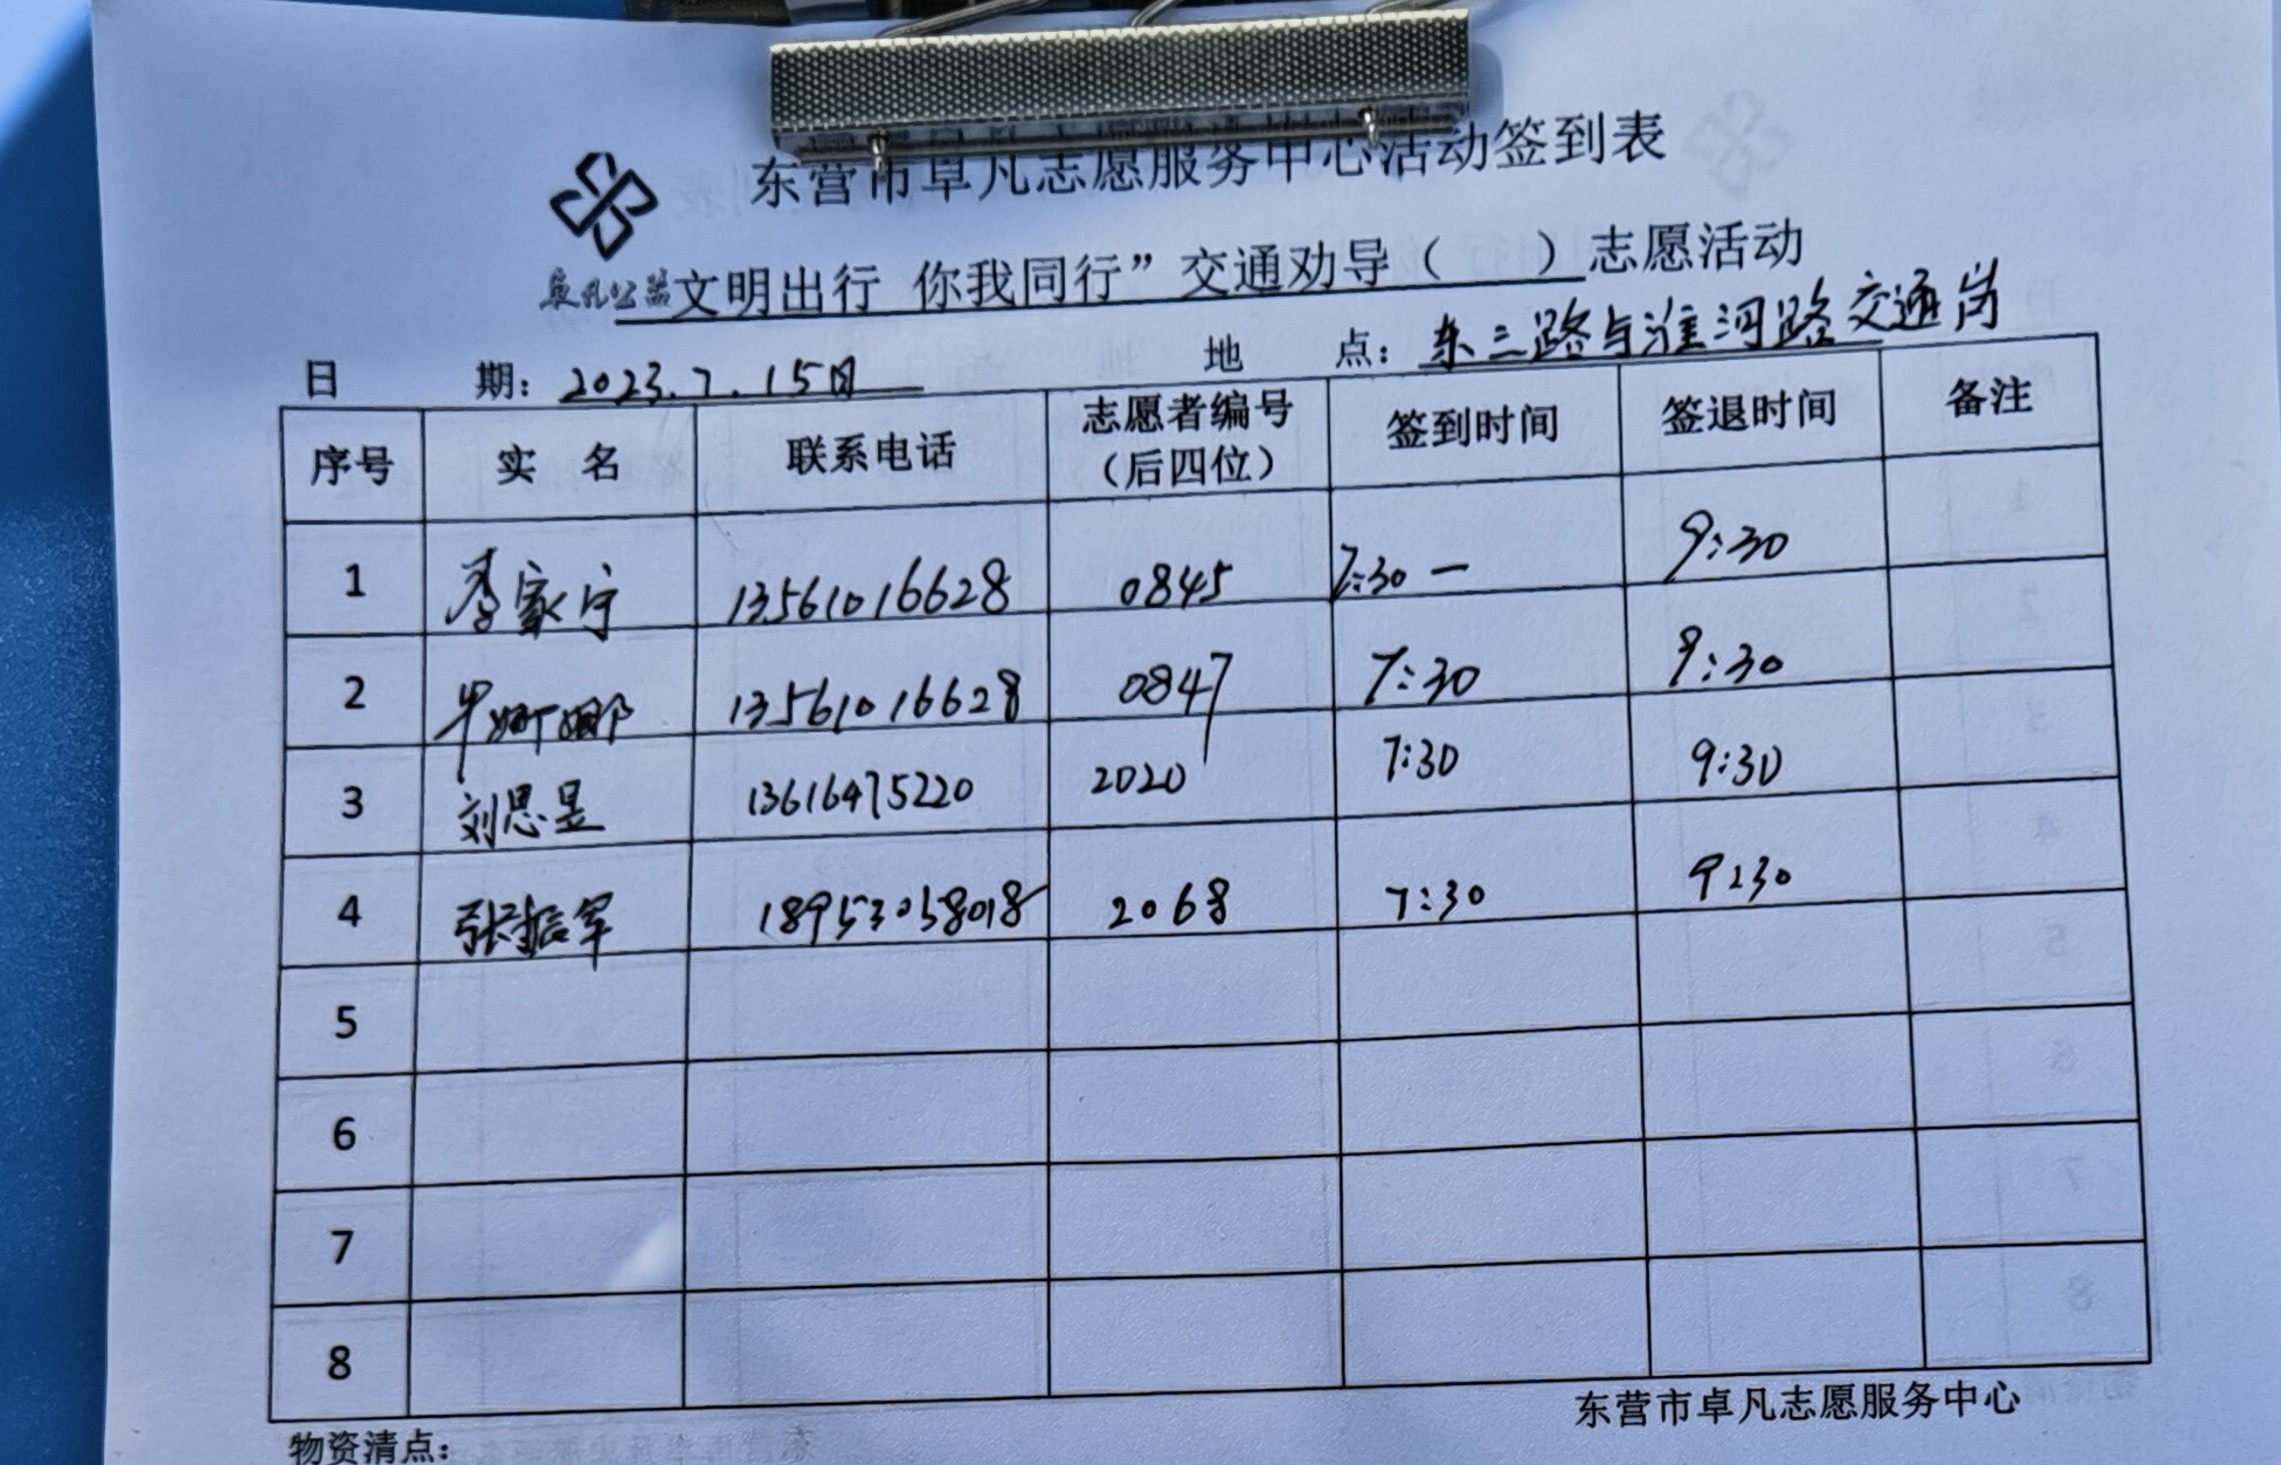 东营市卓凡志愿服务中心活动签到表
卓凡公益
文明出行 你我同行”交通劝导（ ）志愿活动
日 期：2023.7.15日 地 点：东三路与淮河路交通岗
序号 实 名 联系电话 志愿者编号（后四位） 签到时间 签退时间 备注
1 李家宁 13561016628 0845 7:30 — 9:30
2 毕娜娜 13561016628 0847 7:30 9:30
3 刘思昱 13616475220 2020 7:30 9:30
4 张振军 18953058018 2068 7:30 9:30
5
6
7
8
东营市卓凡志愿服务中心
物资清点：